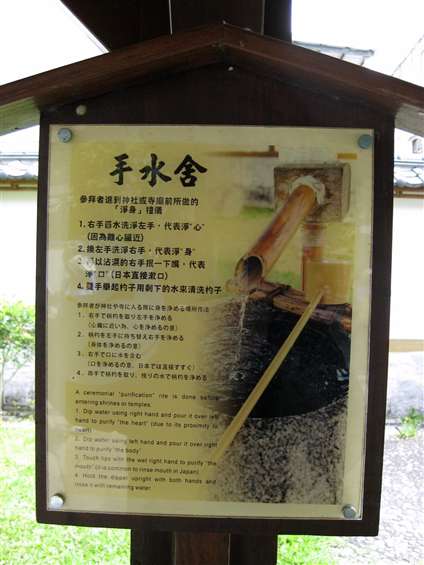 手水舍
參拜者進到神社或寺廟前所做的
「淨身」禮儀
1. 右手舀水洗淨左手，代表淨"心"
(因為離心臟近)
2. 換左手洗淨右手，代表淨"身"
以沾濕的右手抿一下嘴，代表
淨"口"(日本直接漱口)
4. 雙手舉起杓子用剩下的水來清洗杓子
参拝者が神社や寺に入る際に身を浄める場所作法
1. 右手で柄杓を取り左手を浄める
(心臓に近い為、心を浄めるの意)
2. 柄杓を左手に持ち替え右手を浄める
(身体を浄めるの意)
3. 右手で口に水を含む
(口を浄めるの意、日本では直接すすぐ)
4. 両手で柄杓を取り、残りの水で柄杓を浄める
A ceremonial "purification" rite is done before
entering shrines or temples.
1. Dip water using right hand and pour it over left
hand to purify "the heart" (due to its proximity to
heart)
2. Dip water using left hand and pour it over right
hand to purify "the body"
3. Touch lips with the wet right hand to purify "the
mouth" (it is common to rinse mouth in Japan).
4. Hold the dipper upright with both hands and
rinse it with remaining water.